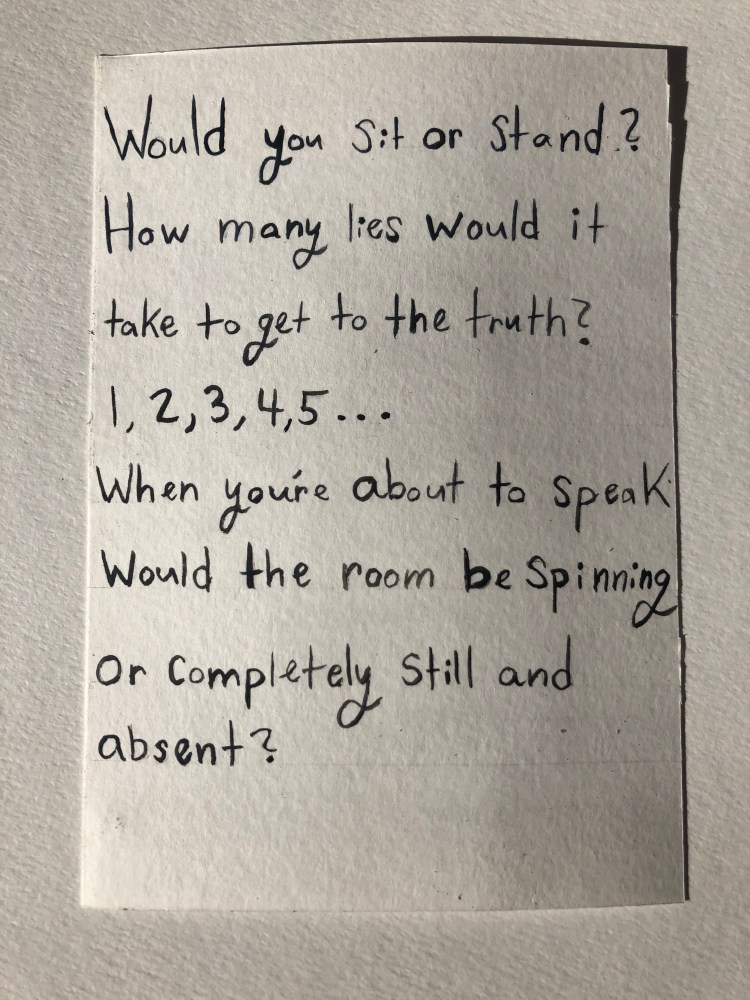 Would you sit or stand?
How many lies would it
take to get to the truth?
1, 2, 3, 4, 5...
When you're about to speak
Would the room be spinning
or completely still and
absent?